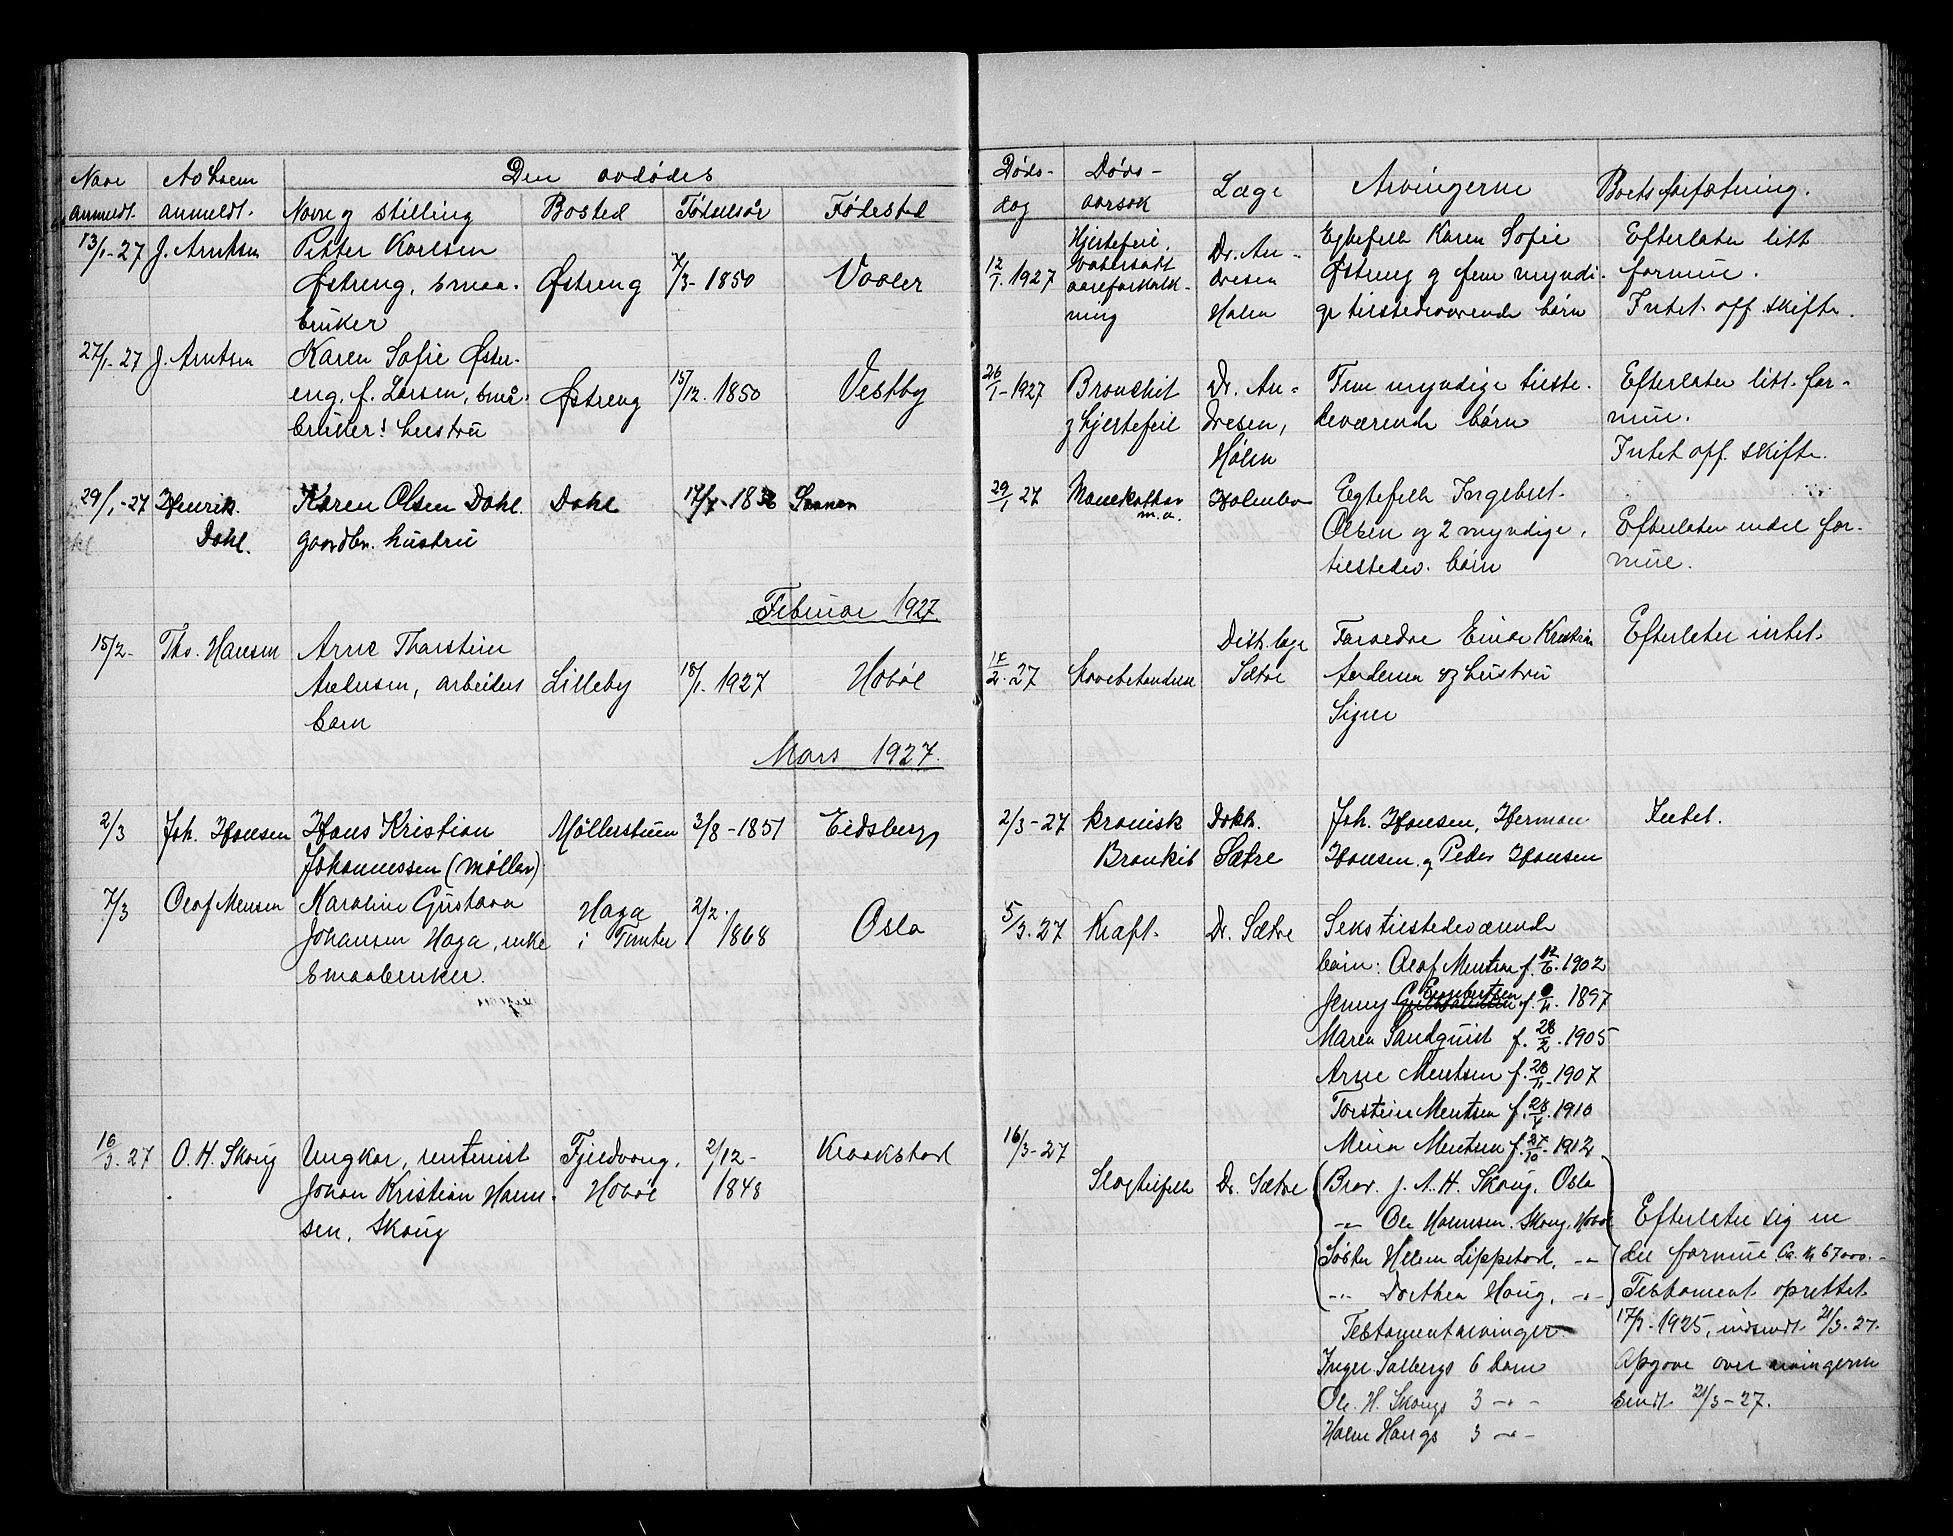 Naar Av hvem Den avdødes
anmeldt. anmeldt. Navn og stilling Bosted Fødselsår Fødested
13/1-27 J. Arntsen Petter Karlsen
Østreng, smaa- Østreng 7/3-1850 Vaaler
bruker
27/1-27 J. Arntsen Karen Sofie Øster-
eng, f. Larsen, små- Østreng 15/12.1850 Vestby
bruker! hustru
29/1-27 Henrik Karen Olsen Dahl. Dahl
Dahl. gaardbr. hustru
Februar 1927
15/2- Th. Hansen Arne Thorstein
arbeiders Lilleby 18/1.1927 Hobøl
barn
Mars 1927.
2/3 Joh. Hansen Hans Kristian Møllerstuen 3/8-1851 Eidsberg
Johannessen (Møller)
7/3 Olaf Mentsen Karoline Gustava Haga 2/2.
Johansen Haga, enke i Tomter 1868 Oslo
smaabruker.
16/3.27 O. H. Skoug Ungkar, rentenist Fjeldvang, 2/12- Kraakstad
Johan Kristian Halm- Hobøl 1848
sen, Skoug
Døds- Døds- Læge Arvingerne Boets forfatning.
dag aarsak
Hjertefeil, Dr. An- Egtefelle Karen Sofie Efterlater litt
12/1.1927 Vatersott dresen Østreng og fem myndi- formue.
aareforkalk- Hølen ge tilstedeværende børn Intet off. skifte.
ning
26/1-1927 Bronchit Dr. An- Fem myndige tilste- Efterlater litt for-
og hjertefeil dresen, deværende børn mue.
Hølen Intet off. skifte.
29/1 27 Mavekathar Holmbo Egtefelle Ingebret
m.a. Olsen og 2 myndige, Efterlater endel for-
tilstedev. børn mue.
Distr.læge Foreldre Einar Kristian Efterlater intet.
2.27 Sætre og hustru
Signe
2/3-27 kronisk Dokt. Joh. Hansen, Herman Intet.
Bronkit Sætre Hansen og Peder Hansen
5/3.27 Kræft. Dr. Sætre Seks tilstedeværende
børn: Olaf Mentsen f. 12/6.1902
Jenny Engebretsen f. 1897
Maren Sandquist f. 28/2.1905
Arne Mentsen f. 28/11.1907
Torstein Mentsen f. 28/4.1910
16/3-27 Mina Mentsen f. 27/10.1912
Slagtilfelle Dr. Sætre Bror. J. A. H. Skoug, Oslo
-"- Ole Halmsen Skoug, Hobøl Efterlater sig en
Søster Helene Lippestad, -"- del formue Ca. Kr 67000.-
-"- Dorthea Haug, -"- Testament oprettet
Testamentarvinger. 17/7-1925, indsendt 21/3-27.
Inger Solbergs 6 barn Opgave over arvingerne
Ole H. Skougs 3 -"- sendt 21/3-27.
Halm Haugs 3 -"-